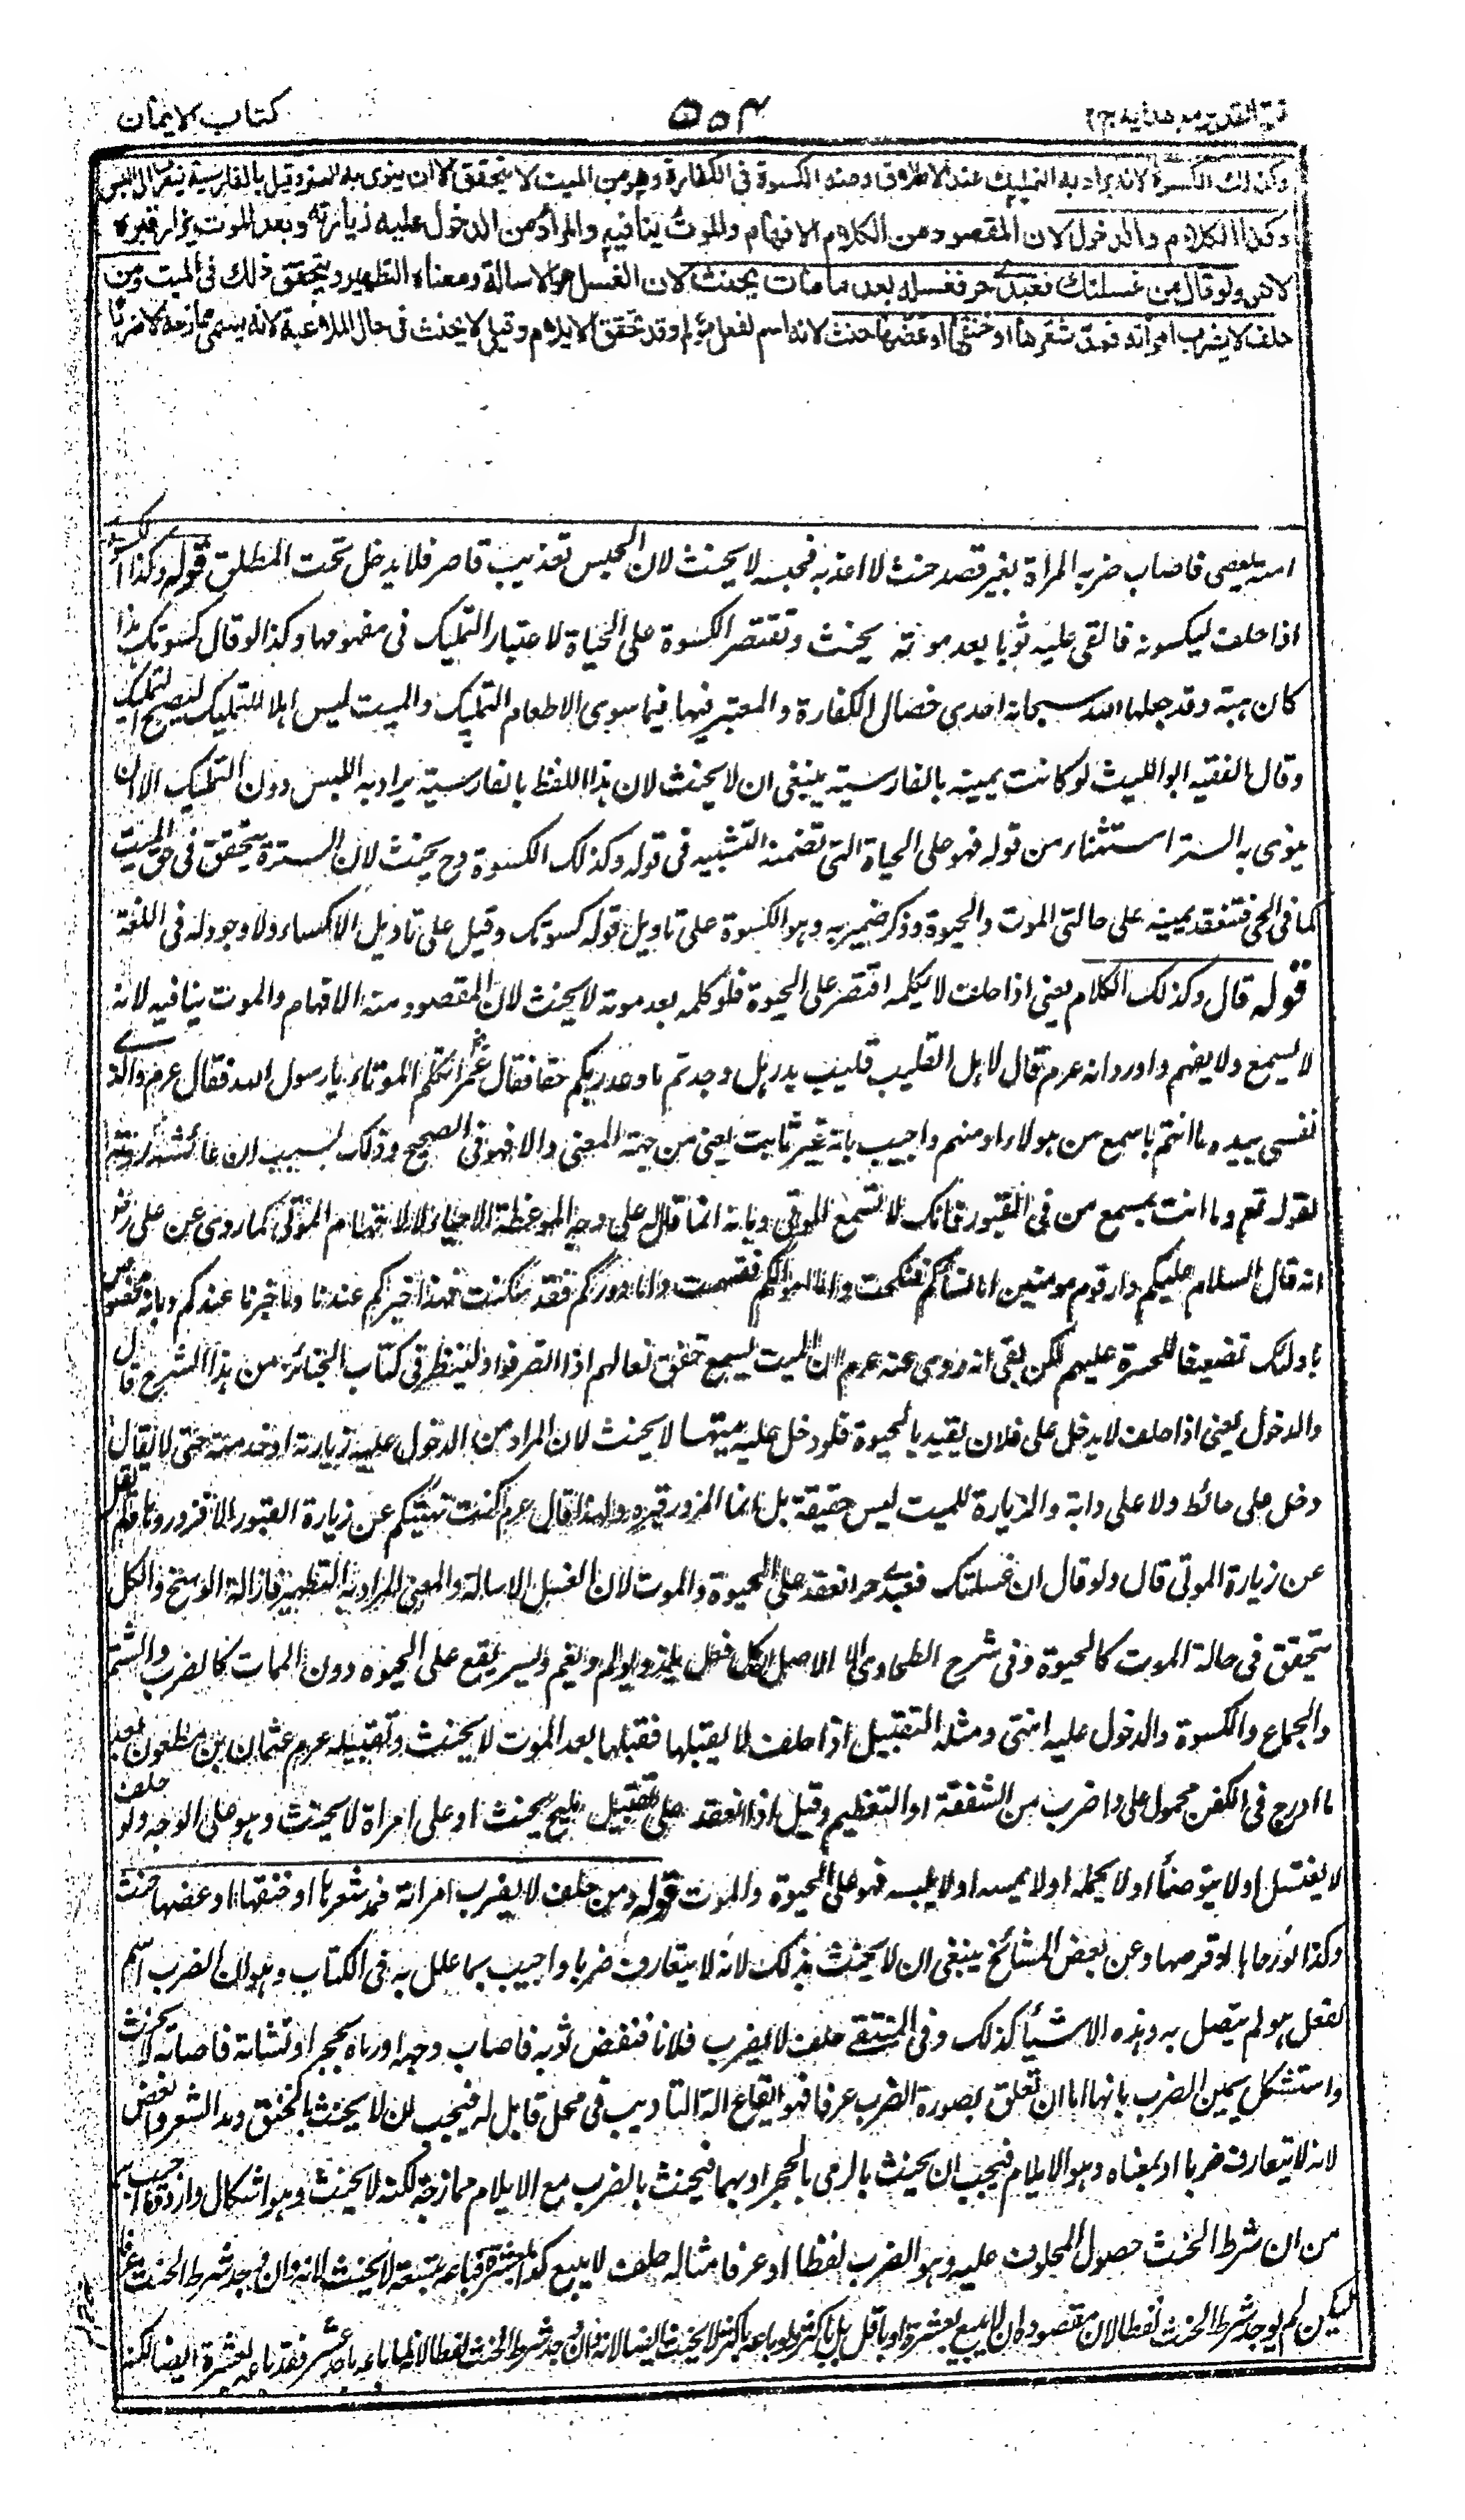 فتح القدير مع هدايه ج٢ ٥٠٣ كتاب الايمان
وكذلك الكسوة لانه يراد به التمليك عند الاطلاق ومنه الكسوة فى الكفارة وهو من الميت لا يتحقق الا ان ينوى به الستر وقيل بالفارسية ينصرف الى اللبس
وكذا الكلام والدخول لان المقصود من الكلام الافهام والموت ينافيه والمراد من الدخول عليه زيارته وبعد الموت يزار قبره
لا هو ولو قال ان غسلتك فعبدى حر فغسله بعد ما مات يحنث لان الغسل هو الاسالة ومعناه التطهير ويتحقق ذلك فى الميت ومن
حلف لا يضرب امرأته فمد شعرها او خنقها او عضها حنث لانه اسم لفعل مؤلم وقد تحقق الايلام وقيل لا يحنث فى حال الملاعبة لانه يسمى ممازحة لا ضربا
امته فاصاب ضربه المراة بغير قصد حنث لا اعذبه فحبسه لا يحنث لان الحبس تعذيب قاصر فلا يدخل تحت المطلق قوله وكذا الكسوة
اذا حلف ليكسونه فالقى عليه ثوبا بعد موته يحنث وتقتصر الكسوة على الحياة لاعتبار التمليك فى مفهومها وكذا لو قال كسوتك هذا
كان هبة وقد جعلها الله سبحانه احدى خصال الكفارة والمعتبر فيها فيما سوى الاطعام التمليك والميت ليس اهلا للتمليك ليصح التمليك
وقال الفقيه ابو الليث لو كانت يمينه بالفارسية ينبغى ان لا يحنث لان هذا اللفظ بالفارسية يراد به اللبس دون التمليك الا ان
ينوى به الستر استثناء من قوله فهو على الحياة التى تضمنه التشبيه فى قوله وكذلك الكسوة وح يحنث لان السترة يتحقق فى حق الميت
كما فى الحى فتنعقد يمينه على حالتى الموت والحيوة وذكر ضمير به وهو الكسوة على تاويل قوله كسوتك وقيل على تاويل الاكساء ولا وجود له فى اللغة
قوله قال وكذلك الكلام يعنى اذا حلف لا يكلمه اقتصر على الحيوة فلو كلمه بعد موته لا يحنث لان المقصود منه الافهام والموت ينافيه لانه
لا يسمع ولا يفهم واورد انه عرم قال لاهل القليب قليب بدر هل وجدتم ما وعد ربكم حقا فقال عمر اتكلم الموتاء يا رسول الله فقال عرم والذى
نفسى بيده ما انتم باسمع من هولاء او منهم واجيب بانه غير ثابت يعنى من جهة المعنى والا فهو فى الصحيح وذلك بسبب ان عائشة ردته
لقوله تع وما انت بمسمع من فى القبور فانك لا تسمع الموتى وبانه انما قاله على وجه الموعظة للاحياء لا لافهام الموتى كما روى عن على رض
انه قال السلام عليكم دار قوم مومنين اما نساؤكم فنكحت واما اموالكم فقسمت واما دوركم فقد سكنت فهذا خبركم عندنا وما خبرنا عندكم وبانه مخصوص
باولئك تضعيفا للحسرة عليهم لكن بقى انه روى عنه عرم ان الميت ليسمع خفق نعالهم اذا انصرفوا ولينظر فى كتاب الجنائز من هذا الشرح قال
والدخول يعنى اذا حلف لا يدخل على فلان يقيد بالحيوة فلو دخل عليه ميتا لا يحنث لان المراد من الدخول عليه زيارته او خدمته حتى لا يقال
دخل على حائط ولا على دابة والزيارة للميت ليس حقيقة بل انما المزور قبره ولهذا قال عرم كنت نهيتكم عن زيارة القبور الا فزوروها فلم يقل
عن زيارة الموتى قال ولو قال ان غسلتك فعبدى حر انعقد على الحيوة والموت لان الغسل الاسالة والمعنى المراد به التطهير فازالة الوسخ والكل
يتحقق فى حالة الموت كالحيوة وفى شرح الطحاوى الاصل ان كل فعل يلذ ويولم ويغم ويسر يقع على الحيوه دون الممات كالضرب والشتم
والجماع والكسوة والدخول عليه انتى ومثله التقبيل اذا حلف لا يقبلها فقبلها بعد الموت لا يحنث وتقبيله عرم عثمان بن مظعون بعد
ما ادرج فى الكفن محمول على ضرب من الشفقة او التعظيم وقيل اذا انعقد على تقبيل ملتح يحنث او على امراة لا يحنث وهو على الوجه ولو حلف
لا يغتسل او لا يتوضأ او لا يحمله او لا يمسه او لا يلبسه فهو على الحيوة والموت قوله ومن حلف لا يضرب امراته فمد شعرها او خنقها او عضها حنث
وكذا لو قرصها وعن بعض المشائخ ينبغى ان لا يحنث بذلك لانه لا يتعارف ضربا واجيب بما علل به فى الكتاب وهو ان الضرب اسم
لفعل مولم يتصل به وهذه الاشيأ كذلك وفى المنتقے حلف لا يضرب فلانا فنفض ثوبه فاصاب وجهه او رماه بحجر او نشابة فاصابه لا يحنث
واستشكل يمين الضرب بانها اما ان تعلق بصورة الضرب عرفا فهو ايقاع الة التاديب فى محل قابل له فيجب ان لا يحنث بالخنق ومد الشعر والعض
لانه لا يتعارف ضربا او بمعناه وهو الايلام فيجب ان يحنث بالرمى بالحجر او بهما فيحنث بالضرب مع الايلام ممازحة لكنه لا يحنث وهو اشكال وارد
من ان شرط الحنث حصول المحلوف عليه وهو الضرب لفظا او عرفا مثاله حلف لا يبيع كذا بعشرة فباعه بتسعة لا يحنث لانه وان وجد شرط الحنث عرفا
ليكن لم يوجد شرط الحنث لفظا لان مقصوده ان لا يبيع بعشرة او باقل بل باكثر ولو باعه باكثر لا يحنث ايضا لانه وان وجد شرط الحنث لفظا لانه لما باعه باحد عشر فقد باعه بعشرة ايضا لكنه